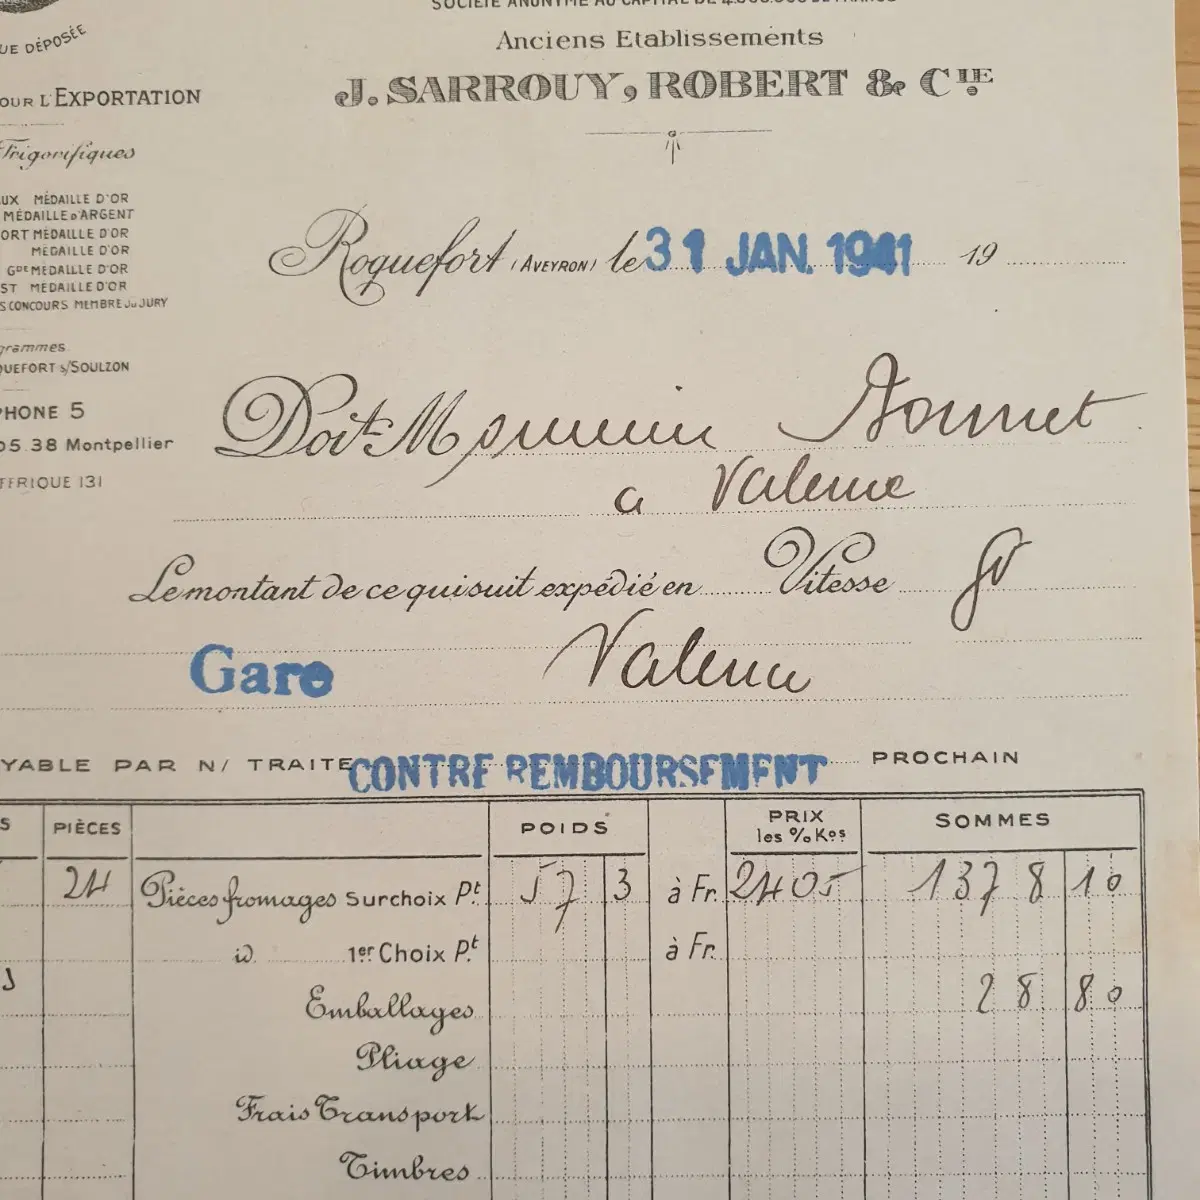 SOCIÉTÉ ANONYME AU CAPITAL DE 4.000.000 DE FRANCS
Anciens Etablissements
J. SARROUY, ROBERT & CIE
UE DÉPOSÉE
OUR L'EXPORTATION
Frigorifiques
UX MÉDAILLE D'OR
MÉDAILLE D'ARGENT
ORT MÉDAILLE D'OR
MÉDAILLE D'OR
GDE MÉDAILLE D'OR
ST MÉDAILLE D'OR
S CONCOURS MEMBRE DU JURY
grammes
QUEFORT S/SOULZON
PHONE 5
05.38 Montpellier
TÉRIQUE 131
Roquefort (AVEYRON) le 31 JAN. 1941 19
Doit Monsieur Bonnet
a Valence
Le montant de ce qui suit expédié en Vitesse GV
Gare Valence
YABLE PAR N/ TRAITE CONTRE REMBOURSEMENT PROCHAIN
S PIÈCES POIDS PRIX les % Kos SOMMES
24 Pièces fromages Surchoix Pt 57 3 à Fr. 2405 1378 10
id 1er Choix Pt à Fr.
Emballages 28 80
Pliage
Frais Transport
Timbres